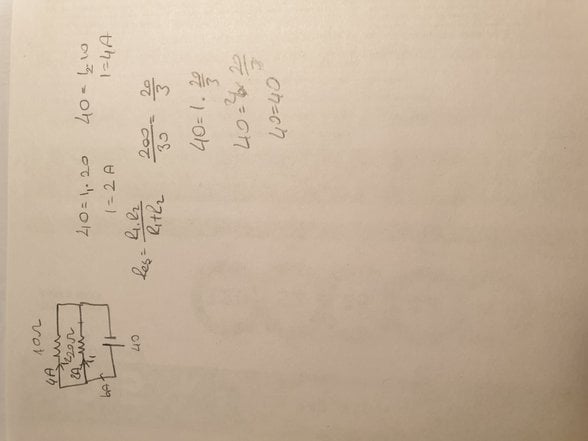 10Ω
4A
I₂
20Ω
2A
I₁
6A
40
40 = I₁ · 20
I = 2 A
40 = I₂ · 10
I = 4A
Reş = R₁·R₂ / R₁+R₂
200/30 = 20/3
40 = I · 20/3
40 = 20/3
40 = 40